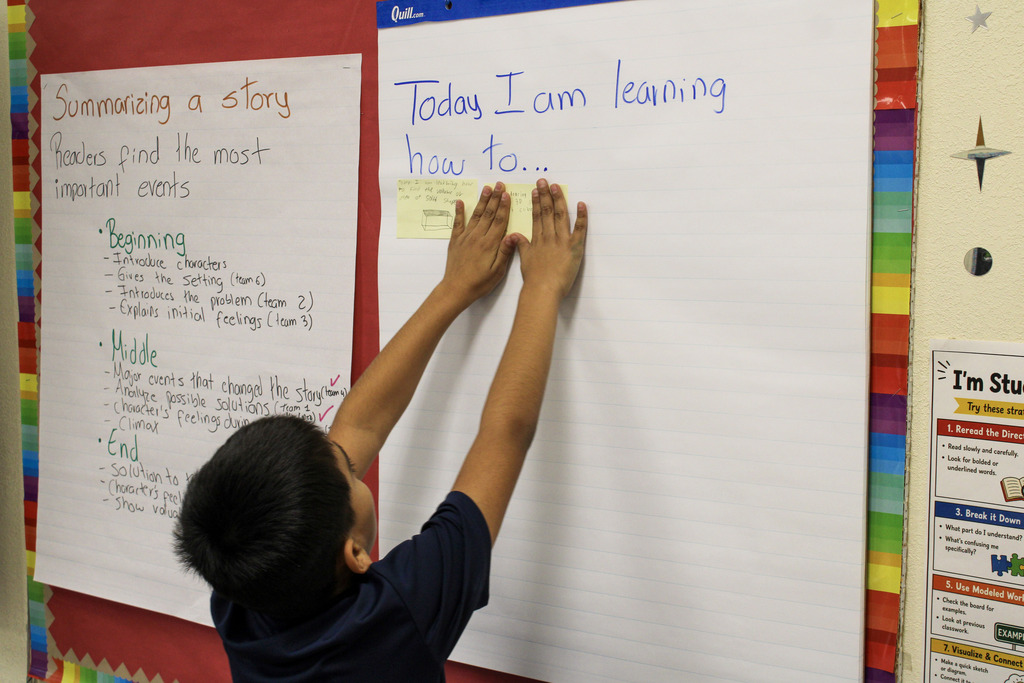 Summarizing a story
Readers find the most
important events
• Beginning
- Introduce characters
- Gives the setting (team 6)
- Introduces the problem (team 2)
- Explains initial feelings (team 3)
• Middle
- Major events that changed the story (team 4)
- Analyze possible solutions (team 1
- Character's feelings during
- Climax
• End
- Solution to
- Character's
- Show
Quill.com
Today I am learning
how to...
I'm
Try these
1. Reread the
• Read slowly and carefully.
• Look for bolded or
underlined words.
3. Break it Down
• What part do I understand?
• What's confusing me
specifically?
5. Use Modeled
• Check the board for
examples.
• Look at previous
classwork.
7. Visualize & Connect
• Make a quick sketch
or diagram.
• Connect it